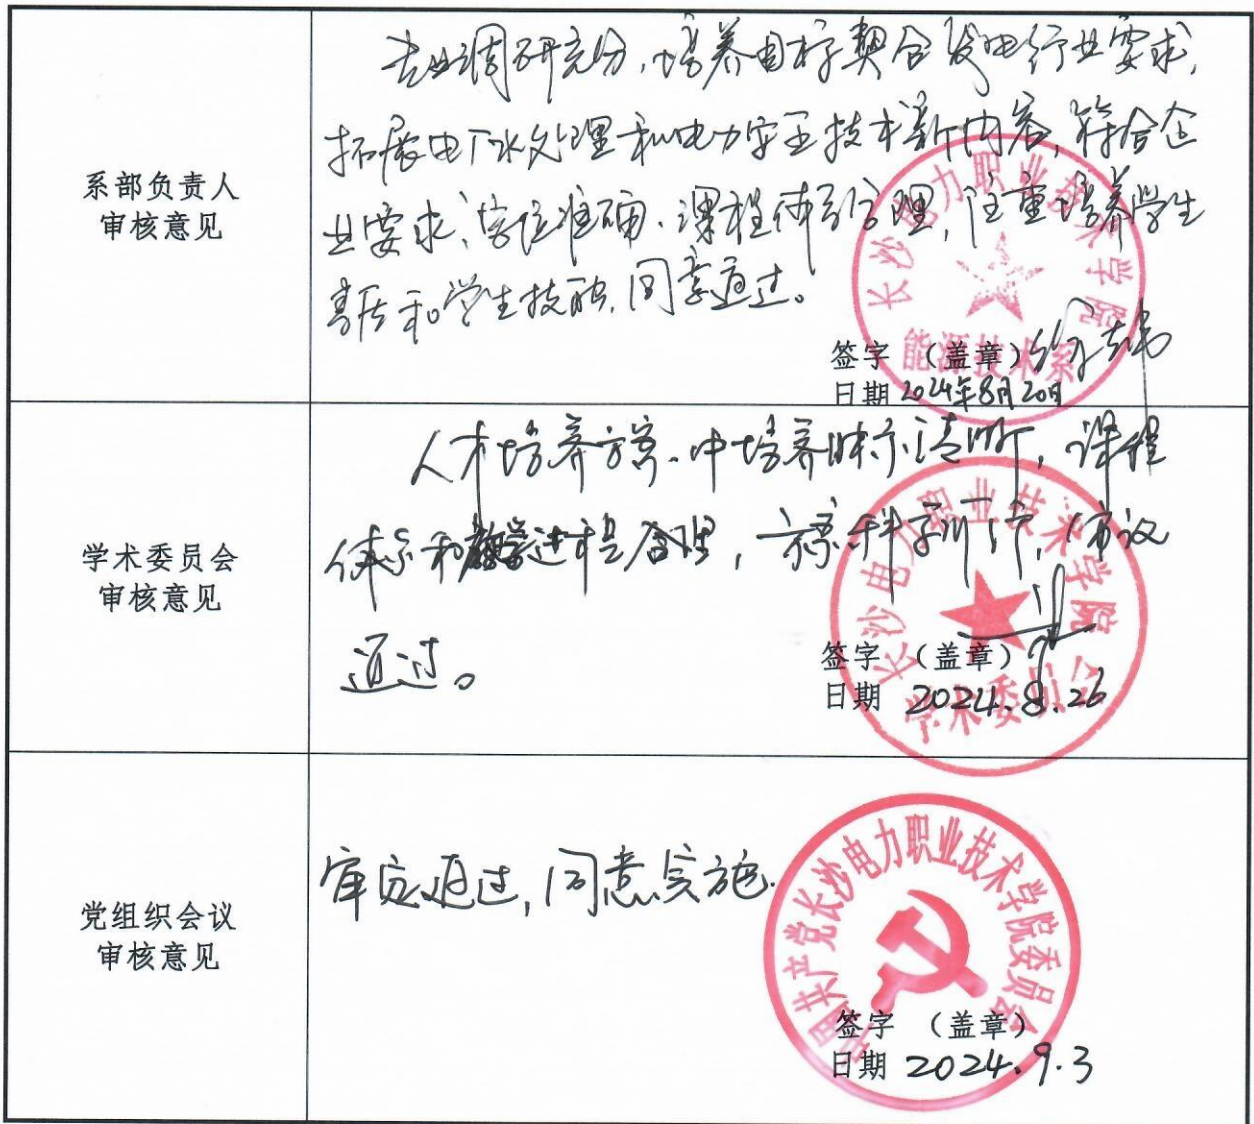 系部负责人
审核意见
专业调研充分，培养目标契合发电行业要求，
拓展电厂水处理和电力安全技术新内容，符合企
业要求，定位准确，课程体系合理，注重培养学生
素质和学生技能，同意通过。
长沙电力职业技术学院
能源技术系
签字 （盖章）
日期 2024年8月20日
学术委员会
审核意见
人才培养方案中培养目标清晰，课程
体系和教学进程合理，方案科学可行，建议
通过。
长沙电力职业技术学院
学术委员会
签字 （盖章）
日期 2024.8.26
党组织会议
审核意见
审定通过，同意实施.
中国共产党长沙电力职业技术学院委员会
签字 （盖章）
日期 2024.9.3